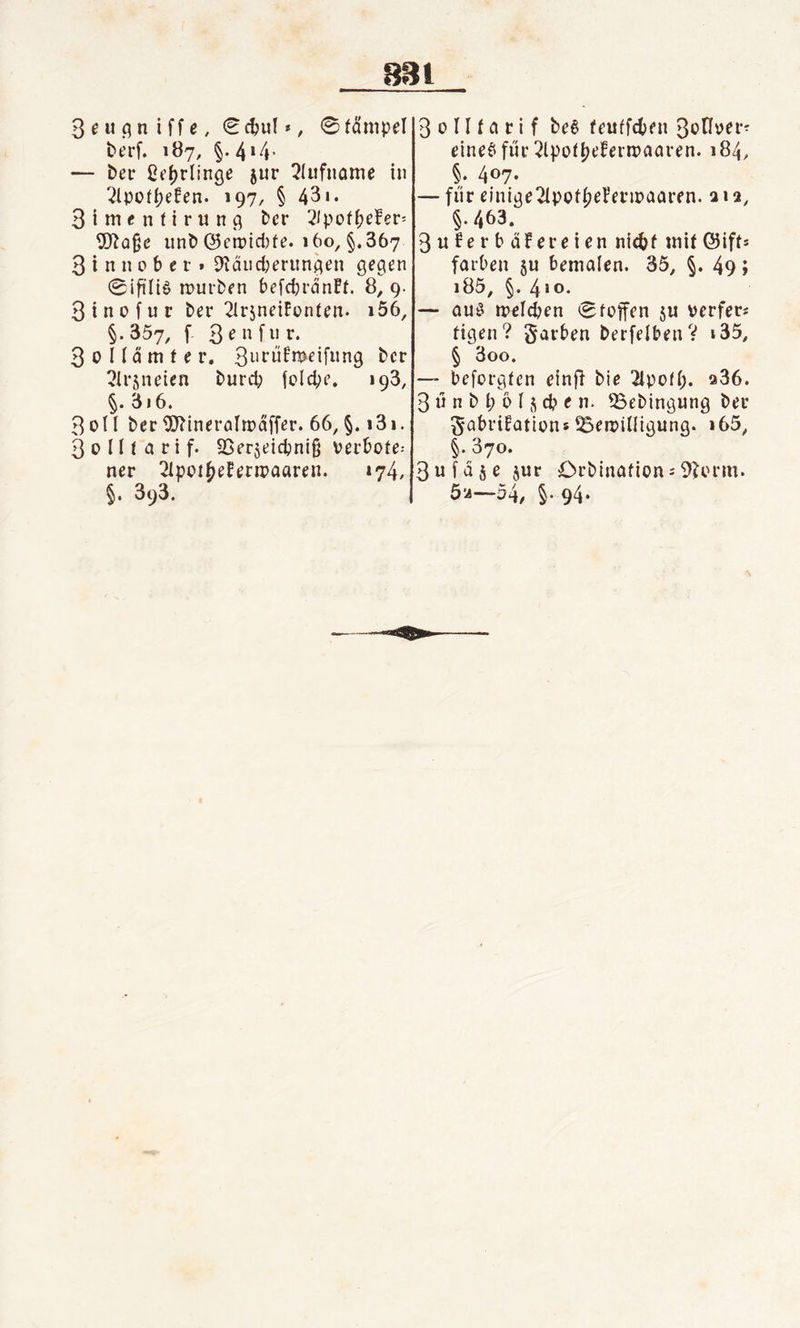 331
Zeugniffe, Schul-, Stämpel
derf. 187, §. 414.
— der Lehrlinge zur Aufname in
Apotheken. 197, § 431.
Zimentirung der Apotheker-
Maße und Gewichte. 160, §. 367
Zinnober-Räucherungen gegen
Sifilis wurden beschränkt. 8, 9.
Zinosur der Arzneikonten. 156,
§. 357, f Zensur.
Zollämter. Zurükweisung der
Arzneien durch solche. 193,
§. 316.
Zoll der Mineralwässer. 66, §. 131.
Zolltarif. Verzeichniß verbote-
ner Apothekerwaaren. 174,
§. 393.
Zolltarif des teutschen Zollver-
eines für Apothekerwaaren. 184,
§. 407.
— für einige Apothekerwaaren. 212,
§. 463.
Zukerbäkereien nicht mit Gift-
farben zu bemalen. 35, §. 49;
185, §. 410.
— aus welchen Stoffen zu verfer-
tigen? Farben derselben? 135,
§ 300.
— besorgten einst die Apoth. 236.
Zündhölzchen. Bedingung der
Fabrikations-Bewilligung. 165,
§. 370.
Zusäze zur Ordinations-Norm.
52—54, §. 94.